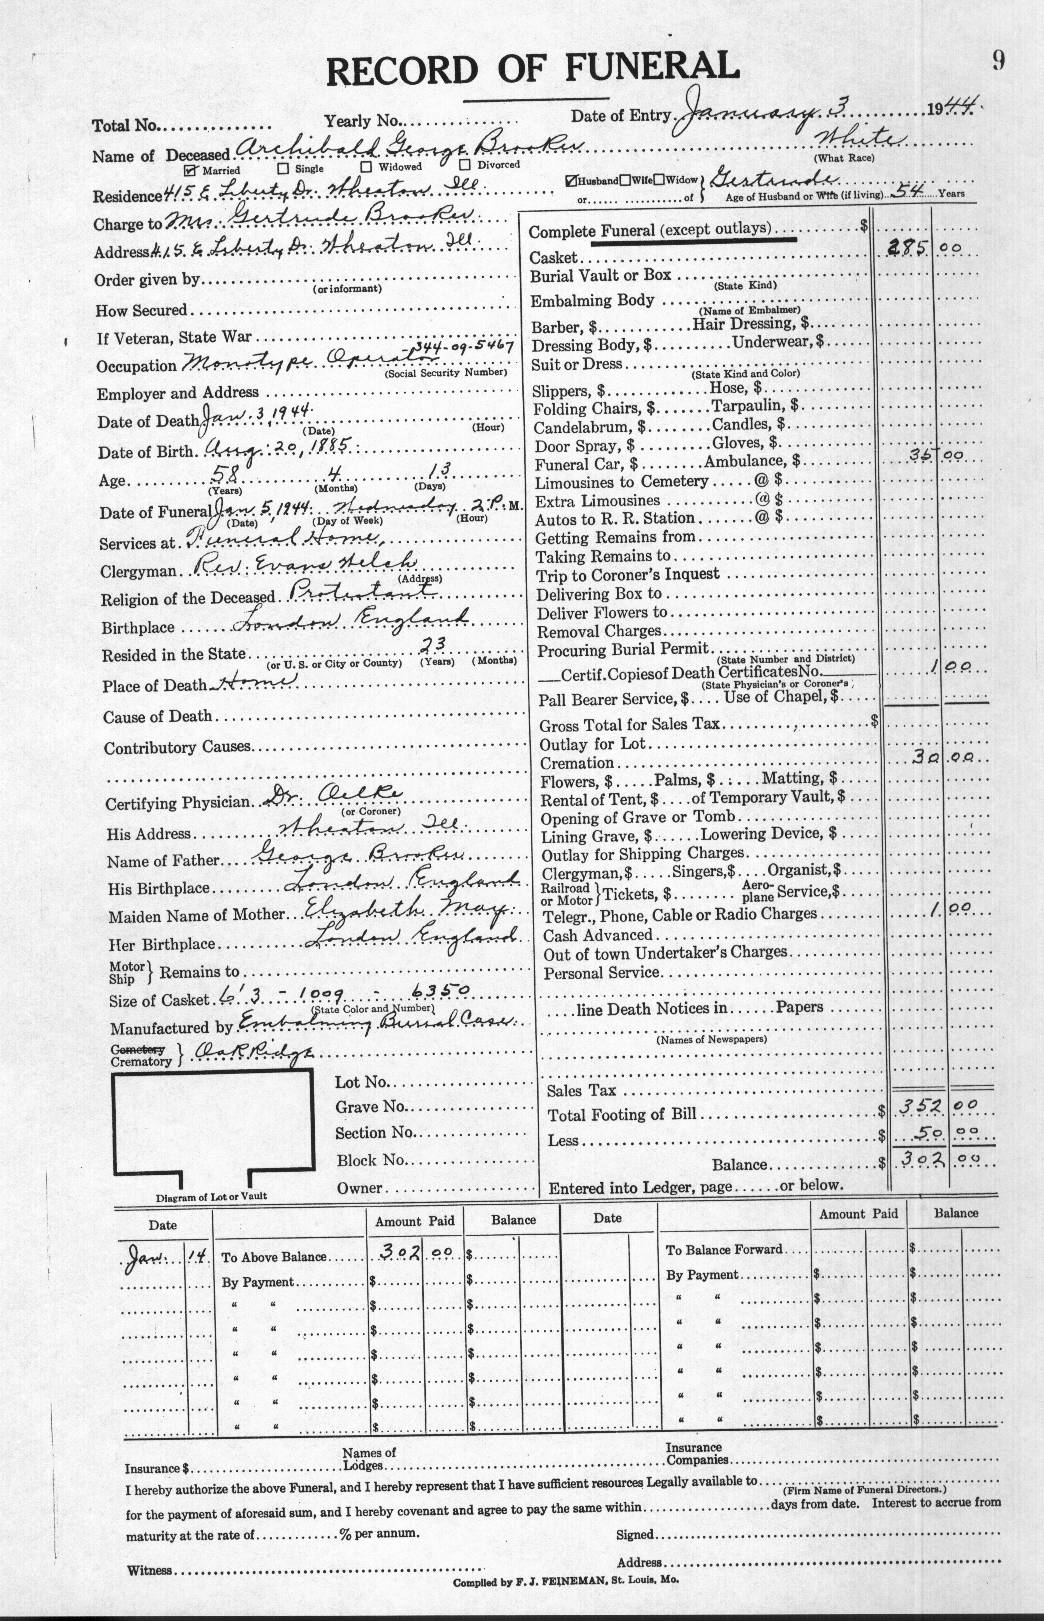 9
RECORD OF FUNERAL
Total No. Yearly No. Date of Entry January 3 1944.
Name of Deceased Archibald George Brooker White
Married Single Widowed Divorced (What Race)
Residence 415 E Liberty Dr. Wheaton Ill. Husband Wife Widow or of } Gertrude Age of Husband or Wife (if living) 54 Years
Charge to Mrs. Gertrude Brooker
Address 415 E Liberty Dr. Wheaton Ill.
Order given by
(or informant)
How Secured
If Veteran, State War
Occupation Monotype Operator 344-09-5467
(Social Security Number)
Employer and Address
Date of Death Jan. 3, 1944.
(Date) (Hour)
Date of Birth Aug. 20, 1885.
Age 58 4 13
(Years) (Months) (Days)
Date of Funeral Jan 5, 1944. Wednesday 2 P. M.
(Date) (Day of Week) (Hour)
Services at Funeral Home,
Clergyman Rev. Evans Welch
(Address)
Religion of the Deceased Protestant
Birthplace London England
Resided in the State 23
(or U. S. or City or County) (Years) (Months)
Place of Death Home
Cause of Death
Contributory Causes
Certifying Physician Dr. Oelke
(or Coroner)
His Address Wheaton Ill
Name of Father George Brooker
His Birthplace London England
Maiden Name of Mother Elizabeth May
Her Birthplace London England
Motor Ship } Remains to
Size of Casket 6'3 - 1009 - 6350
(State Color and Number)
Manufactured by Embalming Burial Case.
Cemetery Crematory } Oak Ridge
Lot No.
Grave No.
Section No.
Block No.
Owner
Diagram of Lot or Vault
Complete Funeral (except outlays) $
Casket 285 00
Burial Vault or Box
(State Kind)
Embalming Body
(Name of Embalmer)
Barber, $ Hair Dressing, $
Dressing Body, $ Underwear, $
Suit or Dress
(State Kind and Color)
Slippers, $ Hose, $
Folding Chairs, $ Tarpaulin, $
Candelabrum, $ Candles, $
Door Spray, $ Gloves, $
Funeral Car, $ Ambulance, $ 35 00
Limousines to Cemetery @ $
Extra Limousines @ $
Autos to R. R. Station @ $
Getting Remains from
Taking Remains to
Trip to Coroner's Inquest
Delivering Box to
Deliver Flowers to
Removal Charges
Procuring Burial Permit
(State Number and District)
Certif. Copies of Death Certificates No. 1 00
(State Physician's or Coroner's)
Pall Bearer Service, $ Use of Chapel, $
Gross Total for Sales Tax $
Outlay for Lot
Cremation 30 00
Flowers, $ Palms, $ Matting, $
Rental of Tent, $ of Temporary Vault, $
Opening of Grave or Tomb
Lining Grave, $ Lowering Device, $
Outlay for Shipping Charges
Clergyman, $ Singers, $ Organist, $
Railroad or Motor } Tickets, $ Aeroplane Service, $
Telegr., Phone, Cable or Radio Charges 1 00
Cash Advanced
Out of town Undertaker's Charges
Personal Service
line Death Notices in Papers
(Names of Newspapers)
Sales Tax
Total Footing of Bill $ 352 00
Less $ 50 00
Balance $ 302 00
Entered into Ledger, page or below.
Date Amount Paid Balance Date Amount Paid Balance
Jan. 14 To Above Balance 302 00 $ To Balance Forward $
By Payment $ $ By Payment $ $
" " $ $ " " $ $
" " $ $ " " $ $
" " $ $ " " $ $
" " $ $ " " $ $
" " $ $ " " $ $
" " $ $ " " $ $
Insurance $ Names of Lodges Insurance Companies
I hereby authorize the above Funeral, and I hereby represent that I have sufficient resources Legally available to
(Firm Name of Funeral Directors.)
for the payment of aforesaid sum, and I hereby covenant and agree to pay the same within days from date. Interest to accrue from
maturity at the rate of % per annum. Signed
Witness Address
Compiled by F. J. FEINEMAN, St. Louis, Mo.